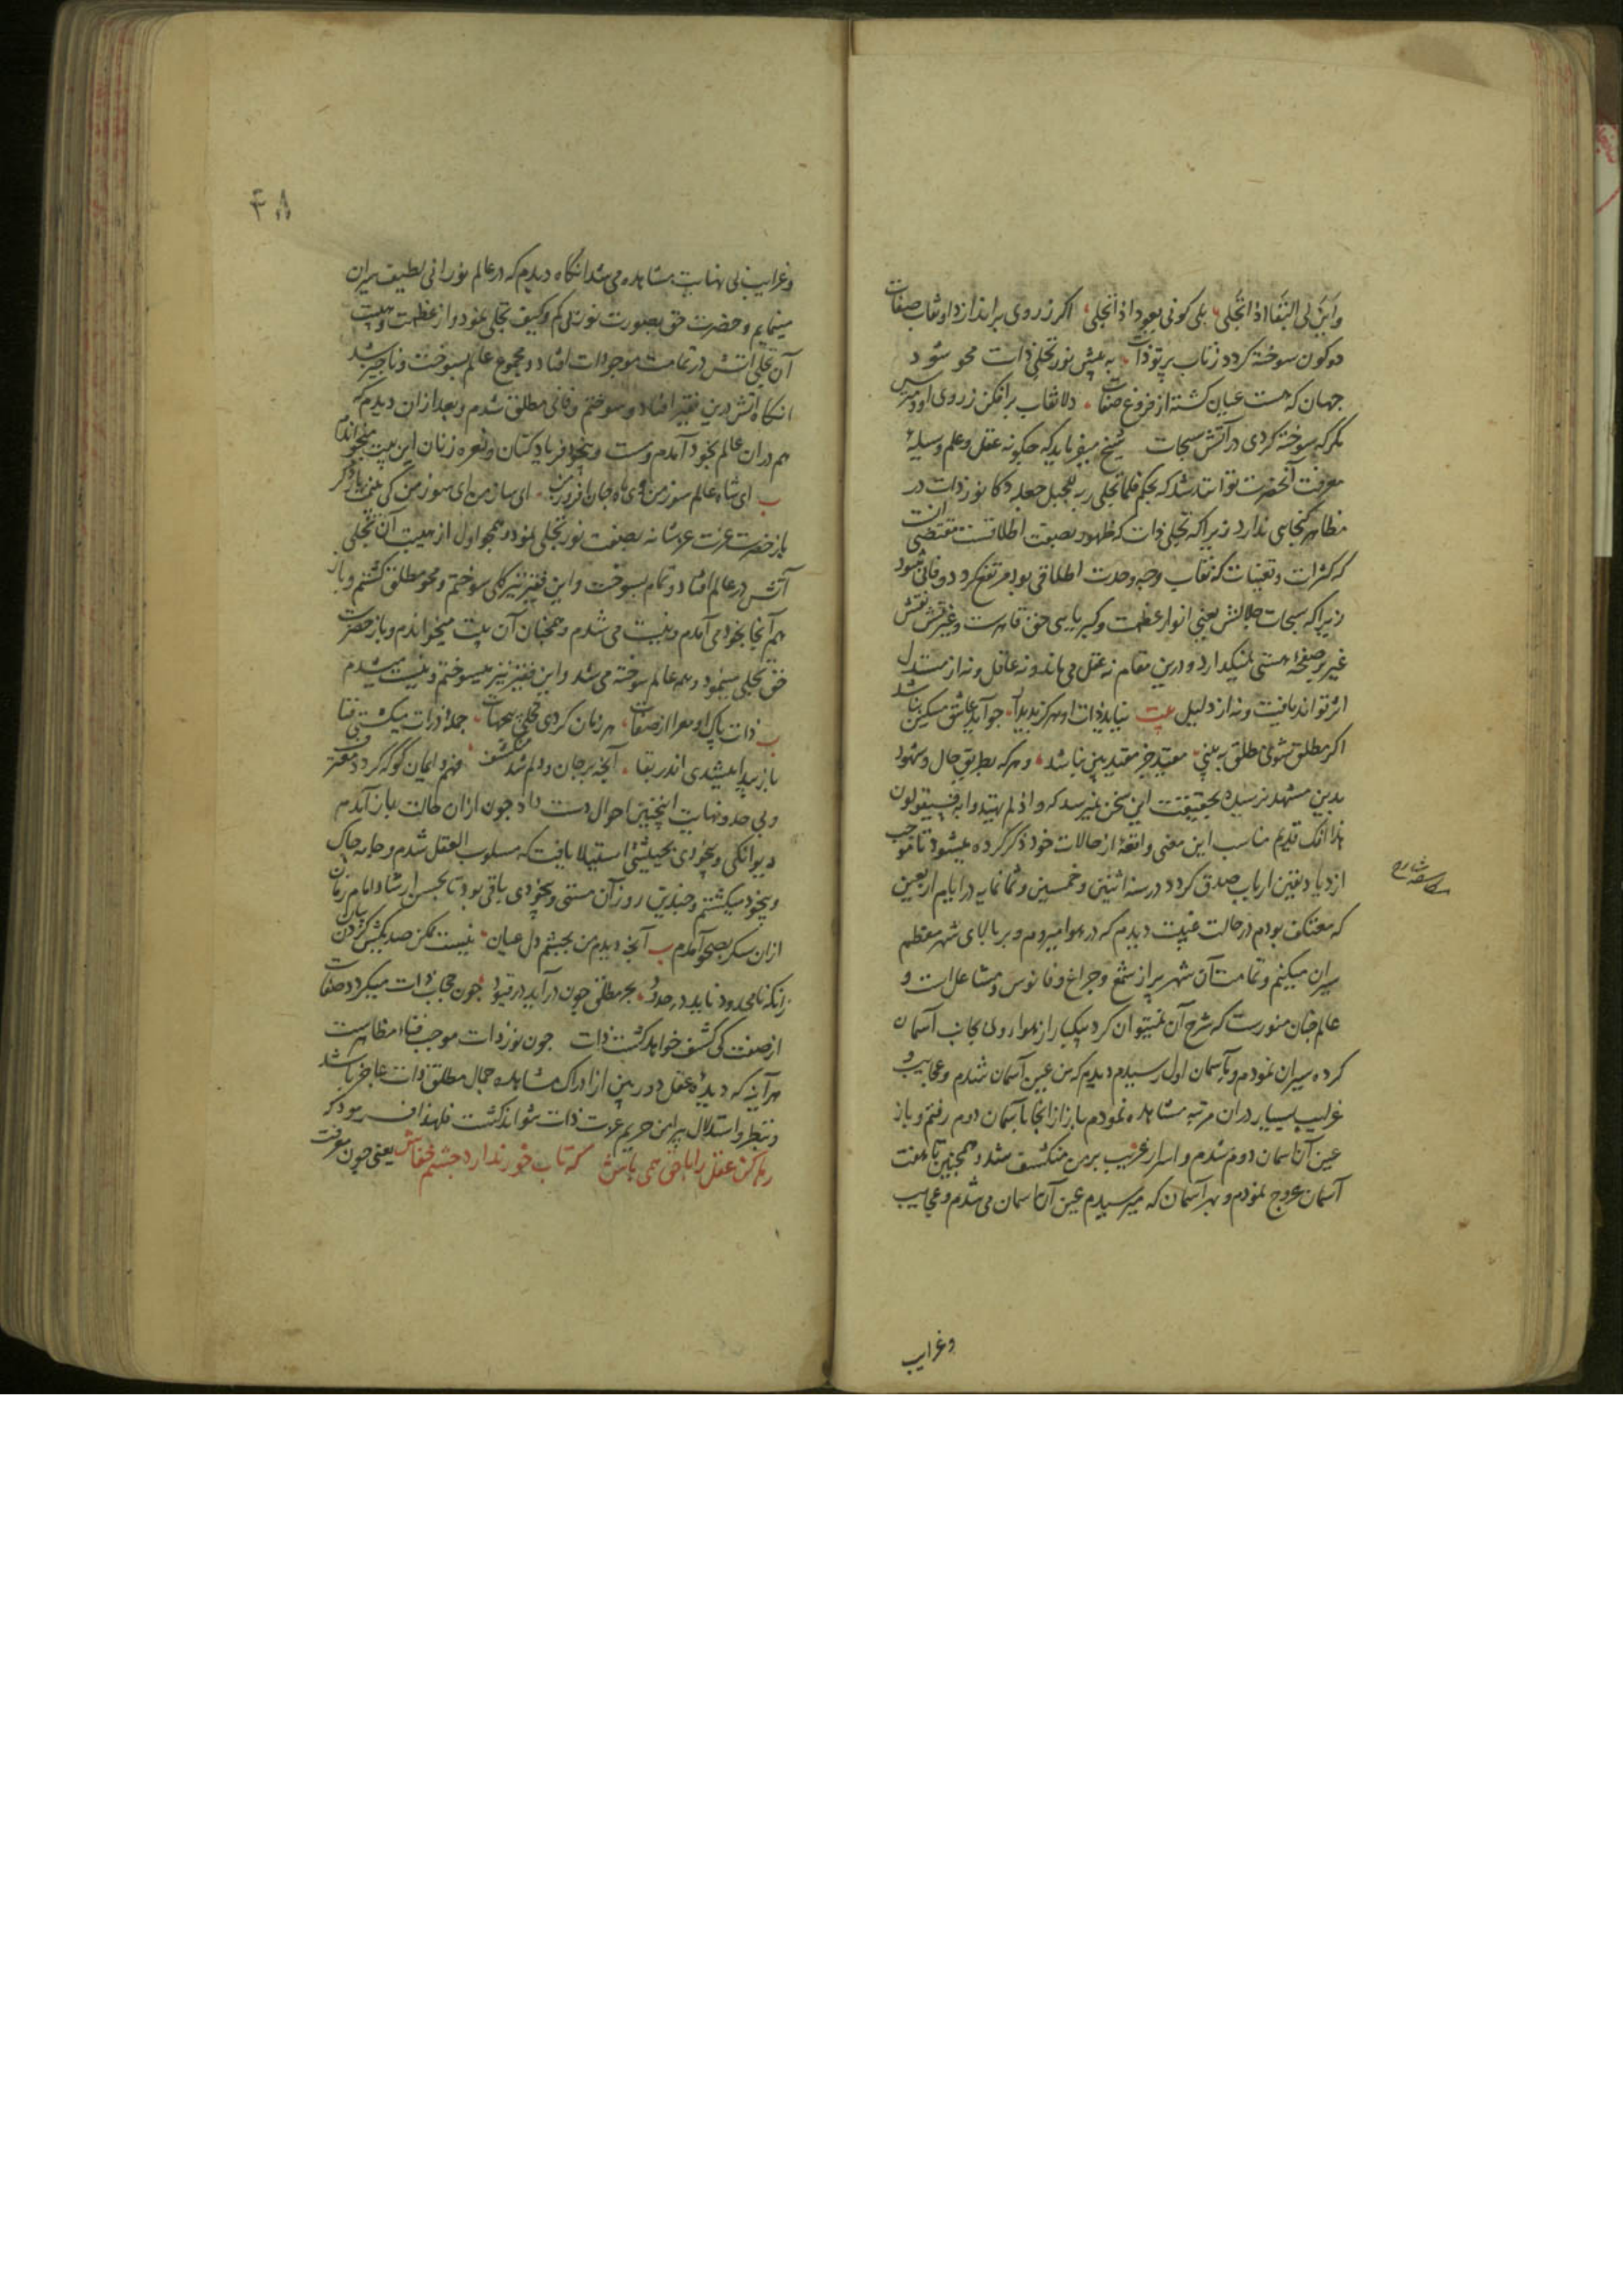 واین لی البقا اذا اتجلی بلی کونی یعود اذا تجلی اکر ز روی براندازد او نقاب صفات
دو کون سوخته کردد ز تاب پرتو ذات به پیش نور تجلی ذات محو شود
جهان که هست عیان کشته از فروغ صفات دلا نقاب برافکن ز روی او و مترس
مکر که سوخته کردی در آتش سبحات شیخ میفرماید که چکونه عقل و علم وسیله
معرفت آنحضرت تواند شد که بحکم فلما تجلی ربه للجبل جعله دکا نور ذات در
مظاهر کنجایی ندارد زیرا که تجلی ذات که ظهور بصفت اطلاقست مقتضی آنست
که کثرات و تعینات که نقاب وجه وحدت اطلاقی بود مرتفع کردد و فانی شود
زیرا که سبحات جلالش یعنی انوار عظمت و کبریایی حق قاهرست و غیرتش نقش
غیر بر صفحه هستی نمیکذارد و درین مقام نه عقل می ماند و نه عاقل و نه از مستدل
اثر تواند یافت و نه از دلیل بیت نیاید ذات او هرکز پدیدار چو آید عاشق مسکین نباشد
اکر مطلق شوی مطلق ببینی مقید جز مقید بین نباشد و هر که بطریق حال و شهود
بدین مشهد نرسیده بحقیقت این سخن نمیرسد که و اذ لم یهتدوا به فسیقولون
هذا افک قدیم مناسب این معنی واقعهٔ از حالات خود ذکر کرده میشود تا موجب
ازدیاد یقین ارباب صدق کردد در سنه اثنین و خمسین و ثمانمایه در ایام اربعین
که معتکف بودم در حالت غیبت دیدم که در هوا میروم و بر بالای شهر معظم
سیران میکنم و تمامت آن شهر پر از شمع و چراغ و فانوس و مشاعل است و
عالم چنان منورست که شرح آن نمیتوان کرد بیکبار از هوا روی بجانب آسمان
کرده سیران نمودم و بآسمان اول رسیدم دیدم که من عین آسمان شدم و عجایب و
غرایب بسیار در آن مرتبه مشاهده نمودم باز از انجا بآسمان دوم رفتم و باز
عین آن آسمان دوم شدم و اسرار غریب بر من منکشف شد و همچنین تا هفت
آسمان عروج نمودم و بهر آسمان که میرسیدم عین آن آسمان می شدم و عجایب
وغرایب
۴۸
و غرایب بی نهایت مشاهده می شد انکاه دیدم که در عالم نورانی لطیف سیران
مینمایم و حضرت حق بصورت نور بی کم و کیف تجلی نمود و از عظمت و هیبت
آن تجلی آتش در تمامت موجودات افتاد و مجموع عالم بسوخت و ناچیز شد
انکاه آتش درین فقیر افتاد و سوختم و فانی مطلق شدم و بعد از ان دیدم که
هم در ان عالم بخود آمدم و مست و بیخود فریاد کنان و نعره زنان این بیت میخواندم
ب ای شاه عالم سوز من وی ماه جان افروز من ای ساز من ای سوز من کی بینمت بار دکر
باز حضرت عزت عز شانه بصفت نور تجلی نمود و همچو اول از هیبت آن تجلی
آتش در عالم افتاد و تمام بسوخت و این فقیر نیز کلی سوختم و محو مطلق کشتم و باز
هم آنجا بخود می آمدم و نیست می شدم و همچنان آن بیت میخواندم و باز حضرت
حق تجلی مینمود و همه عالم سوخته می شد و این فقیر نیز میسوختم و نیست میشدم
ب ذات پاک او معرا از صفات هر زمان کردی تجلی بیجهات جمله ذرات میکشتی فنا
باز پیدا میشدی اندر بقا آنچه بر جان و دلم شد منکشف فهم و ایمان کو که کردد معترف
و بی حد و نهایت اینچنین احوال دست داد چون از ان حالت باز آمدم
دیوانکی و بیخودی بحیثیتی استیلا یافت که مسلوب العقل شدم و جامه چاک
و بیخود میکشتم و چندین روز آن مستی و بیخودی باقی بود تا بحسن ارشاد امام زمان
از ان سکر بصحو آمدم ب آنچه دیدم من بچشم دل عیان نیست ممکن صد یکیش کردن بیان
زانکه نامحدود ناید در حدود بحر مطلق چون درآید در قیود چون حجاب ذات میکردد صفات
از صفت کی کشف خواهد کشت ذات چون نور ذات موجب فناء مظاهرست
هرآینه که دیدهٔ عقل دوربین از ادراک مشاهده جمال مطلق ذات عاجز باشد
و بنظر و استدلال پیرامن حریم عزت ذات نتواند کشت فلهذا فرمود که
رها کن عقل را با حق همی باش که تاب خور ندارد چشم خفاش یعنی چون معرفت